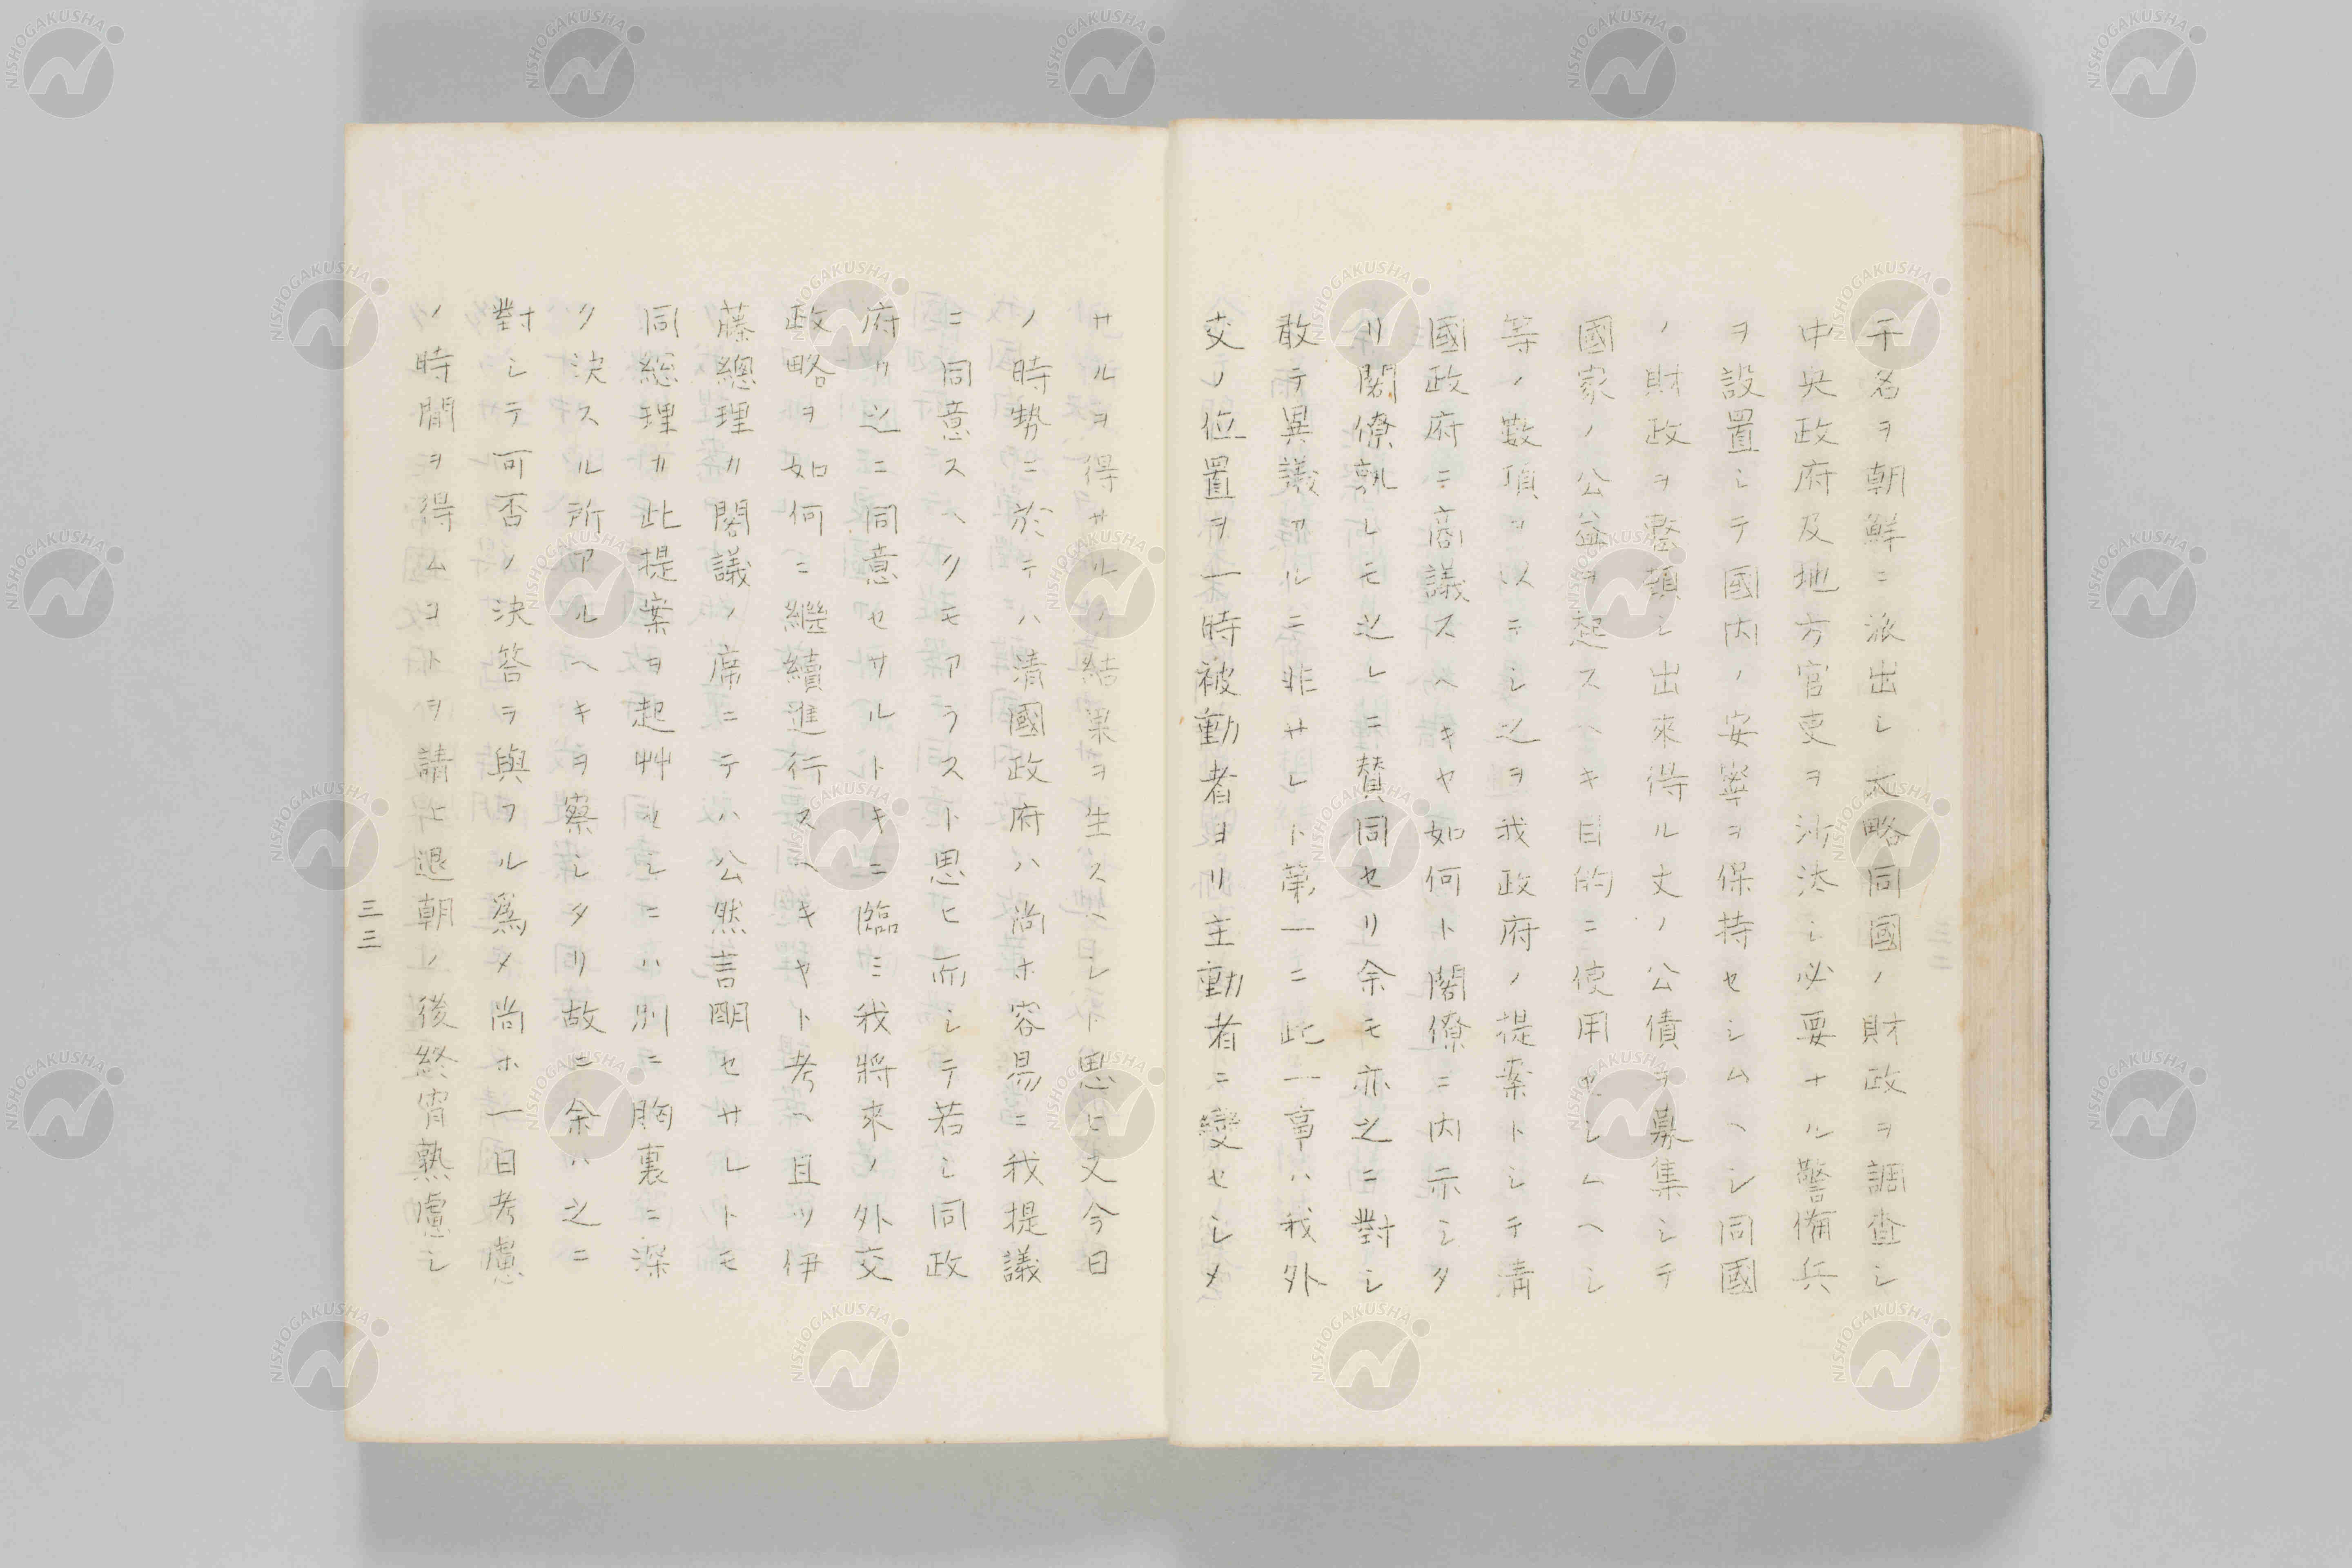 干名ヲ朝鮮ニ派出シ大略同國ノ財政ヲ調査シ
中央政府及地方官吏ヲ沙汰シ必要ナル警備兵
ヲ設置シテ國内ノ安寧ヲ保持セシムヘシ同國
ノ財政ヲ整頓シ出來得ル丈ノ公債ヲ募集シテ
國家ノ公益ヲ起スヘキ目的ニ使用セシムヘシ
等ノ數項ヲ以テシ之ヲ我政府ノ提案トシテ清
國政府ニ商議スヘキヤ如何ト閣僚ニ内示シタ
リ閣僚孰レモ之レニ賛同セリ余モ亦之ニ對シ
敢テ異議アルニ非サレト第一ニ此一事ハ我外
交ノ位置ヲ一時被動者ヨリ主動者ニ變セシメ
サルヲ得サルノ結果ヲ生スヘシト思ヒ又今日
ノ時勢ニ於テハ清國政府ハ尚ホ容易ニ我提議
ニ同意スヘクモアラスト思ヒ而シテ若シ同政
府カ之ニ同意セサルトキニ臨ミ我將來ノ外交
政略ヲ如何ニ繼續進行スヘキヤト考ヘ且ツ伊
藤總理カ閣議ノ席ニテハ公然言明セサレトモ
同総理カ此提案ヲ起艸ルシニハ別ニ胸裏ニ深
ク決スル所アルヘキヲ察シタリ故ニ余ハ之ニ
對シテ可否ノ決答ヲ與フル爲メ尚ホ一日考慮
ノ時間ヲ得ムヿトヲ請ヒ退朝ノ後終宵熟慮シ
三三
NISHOGAKUSHA